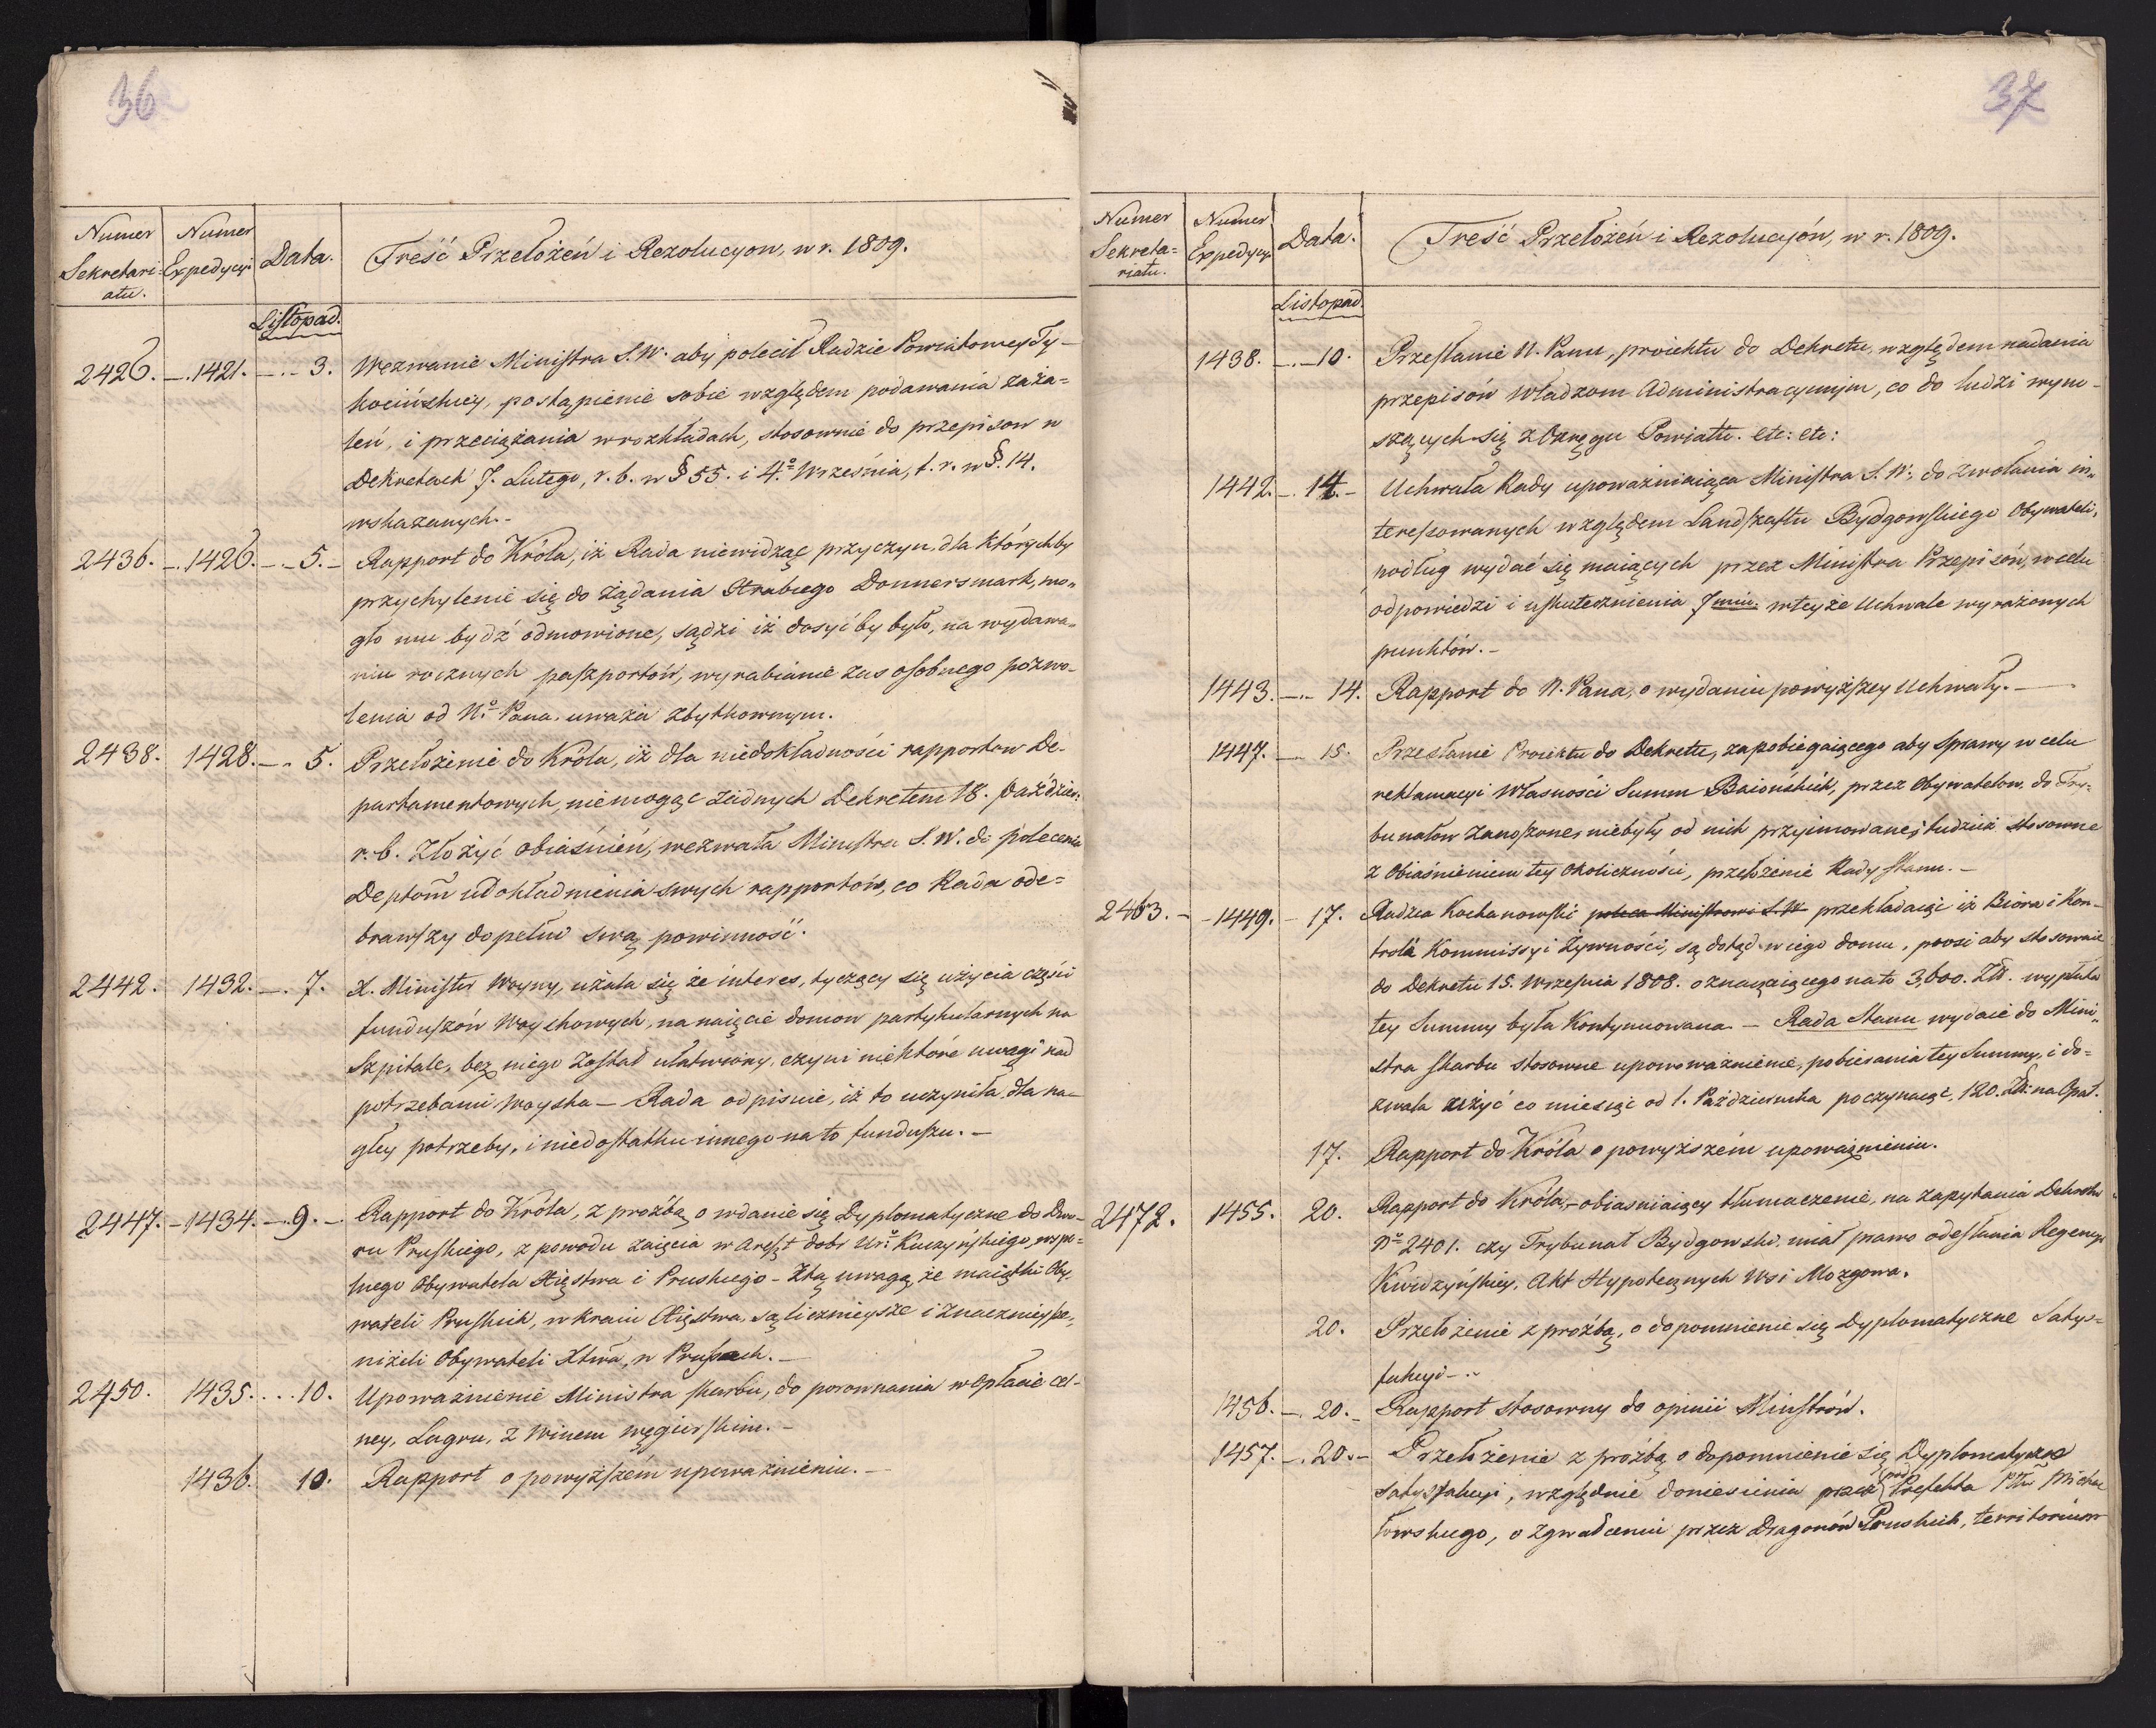 36
Numer Sekretari- atu.
Numer Expedycyi
Data.
Treść Przełożeń i Rezolucyow, w r. 1809.
Listopad.
2426. -. 1421. -.- 3. Wezwanie Ministra S.W. aby polecił Radzie Powiatowey Ty-
kocińskiey, postąpienie sobie względem podawania zaża=
leń, i przeciążania w rozkładach, stosownie do przepisow w
Dekretach 7. Lutego, r. b. w § 55. i 4.º Września, t. r. w §. 14.
wskazanych.-
2436. -. 1426. -.- 5. - Rapport do Króla, iż Rada niewidząc przyczyn, dla którychby
przychylenie się do żądania Hrabiego Donnersmark, mo=
gło mu bydź odmowione, sądzi iż dosyć by było, na wydawa=
niu rocznych paszportów, wyrabianie zas osobnego pozwo-
lenia od N.º Pana uważa zbytkownym.
2438. 1428. -. 5. Przełożenie do Króla, iż dla niedokładności rapportow De-
partamentowych, niemogąc żadnych Dekretem 18. Paździer:
r. b. złożyć obiaśnień, wezwała Ministra S.W. do polecenia
Deptom udokładnienia swych rapportów, co Rada ode=
brawszy dopełni swą powinność.
2442. 1432. -. 7. X. Minister Woyny, użala się że interes, tyczący się użycia części
funduszów Woyskowych, na naięcie domow partykularnych na
Szpitale, bez niego został ułatwiony, czyni niektóre uwagi nad
potrzebami Woyska - Rada odpisuie, iż to uczyniła dla na-
głey potrzeby, i niedostatku innego na to funduszu. -
2447. - 1434. -. 9. -. Rapport do Króla, z prożbą o wdanie się Dyplomatyczne do Dwo-
ru Pruskiego, z powodu zaięcia w areszt dobr Ur.º Kuczyńskiego, wspó=
lnego Obywatela Xięstwa i Pruskiego - Z tą uwagą, że maiątki Oby-
wateli Pruskich, w kraiu Xięstwa, są licznieysze i znacznieysze,
niżeli Obywateli Xtwa, w Prusach. -
2450. 1435. . . . 10. Upoważnienie Ministra skarbu, do porownania w Opłacie Cel-
ney, Lagru, z Winem węgierskim. -
1436. 10. Rapport o powyższém upoważnieniu. -
37
Numer Sekreta= riatu.
Numer Expedycyi
Data.
Treść Przełożeń i Rezolucyów, w r. 1809.
Listopad.
1438. -.- 10. Przesłanie N. Panu, proiektu do Dekretu, względem nadania
przepisów Władzom Administracyinym, co do ludzi wyno-
szących się z Okręgu Powiatu. etc: etc:
1442. -. 14. - Uchwała Rady upoważniaiąca Ministra S.W. do zwołania in=
teressowanych względem Landszaftu Bydgowskiego Obywateli,
podług wydać się maiących przez Ministra Przepisów, w celu
odpowiedzi i uskutecznienia 7miu wteyże Uchwale wyrażonych
punktów. -
1443. -.- 14. Rapport do N. Pana, o wydaniu powyższey Uchwały. -
1447. -- 15. Przesłanie Proiektu do Dekretu, zapobiegaiącego aby sprawy w celu
reklamacyi Własności Summ Baiońskich, przez Obywatelow, do Try-
bunałow zanoszone, niebyły od nich przyimowane; tudzież stosowne
z Obiaśnieniem tey Okoliczności, przełożenie Rady Stanu. -
2463. - - 1449. - 17. Radzca Kochanowski poleca Ministrowi S.W. przekładaiąc iż Biora i Kon-
trola Kommissyi Żywności, są dotąd w iego domu, prosi aby stosownie
do Dekretu 15. Września 1808. oznaczaiącego na to 3,600. Złł. wypłata
tey Summy była kontynuowana - Rada Stanu wydaie do Mini=
stra skarbu stosowne upoważnienie, pobierania tey Summy, i do=
zwala użyć co miesiąc od 1. Października poczynaiąc, 120. Złł. na Opał.
17. Rapport do Króla o powyższém upoważnieniu.
2472. 1455. 20. Rapport do Króla, - obiasniaiący tłumaczenie, na zapytania Dekretu
Nº 2401. czy Trybunał Bydgowski miał prawo odesłania Regencyi
Kwidzyńskiey, Akt Hypotecznych Wsi Mozgowa.
20. Przełożenie z proźbą, o dopomnienie się Dyplomatyczne Satys=
fakcyi -..
1456. -. 20. - Rapport stosowny do opinii Ministrów.
1457. -. 20. - Przełożenie z proźbą o dopomnienie się Dyplomatyczne
Satysfakcyi, względnie doniesienia przez pod Prefekta Pttu Micha=
łowskiego, o zgwałceniu przez Dragonów Pruskich, territorium